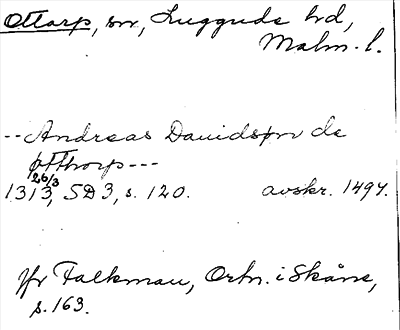 Ottarp, sn, Luggude hd,
Malm. l.
-- Andreas Dauidsson de
Otthorp ---
26/3
1313, SD 3, s. 120. avskr. 1494.
Jfr Falkman, Ortn. i Skåne,
s. 163.